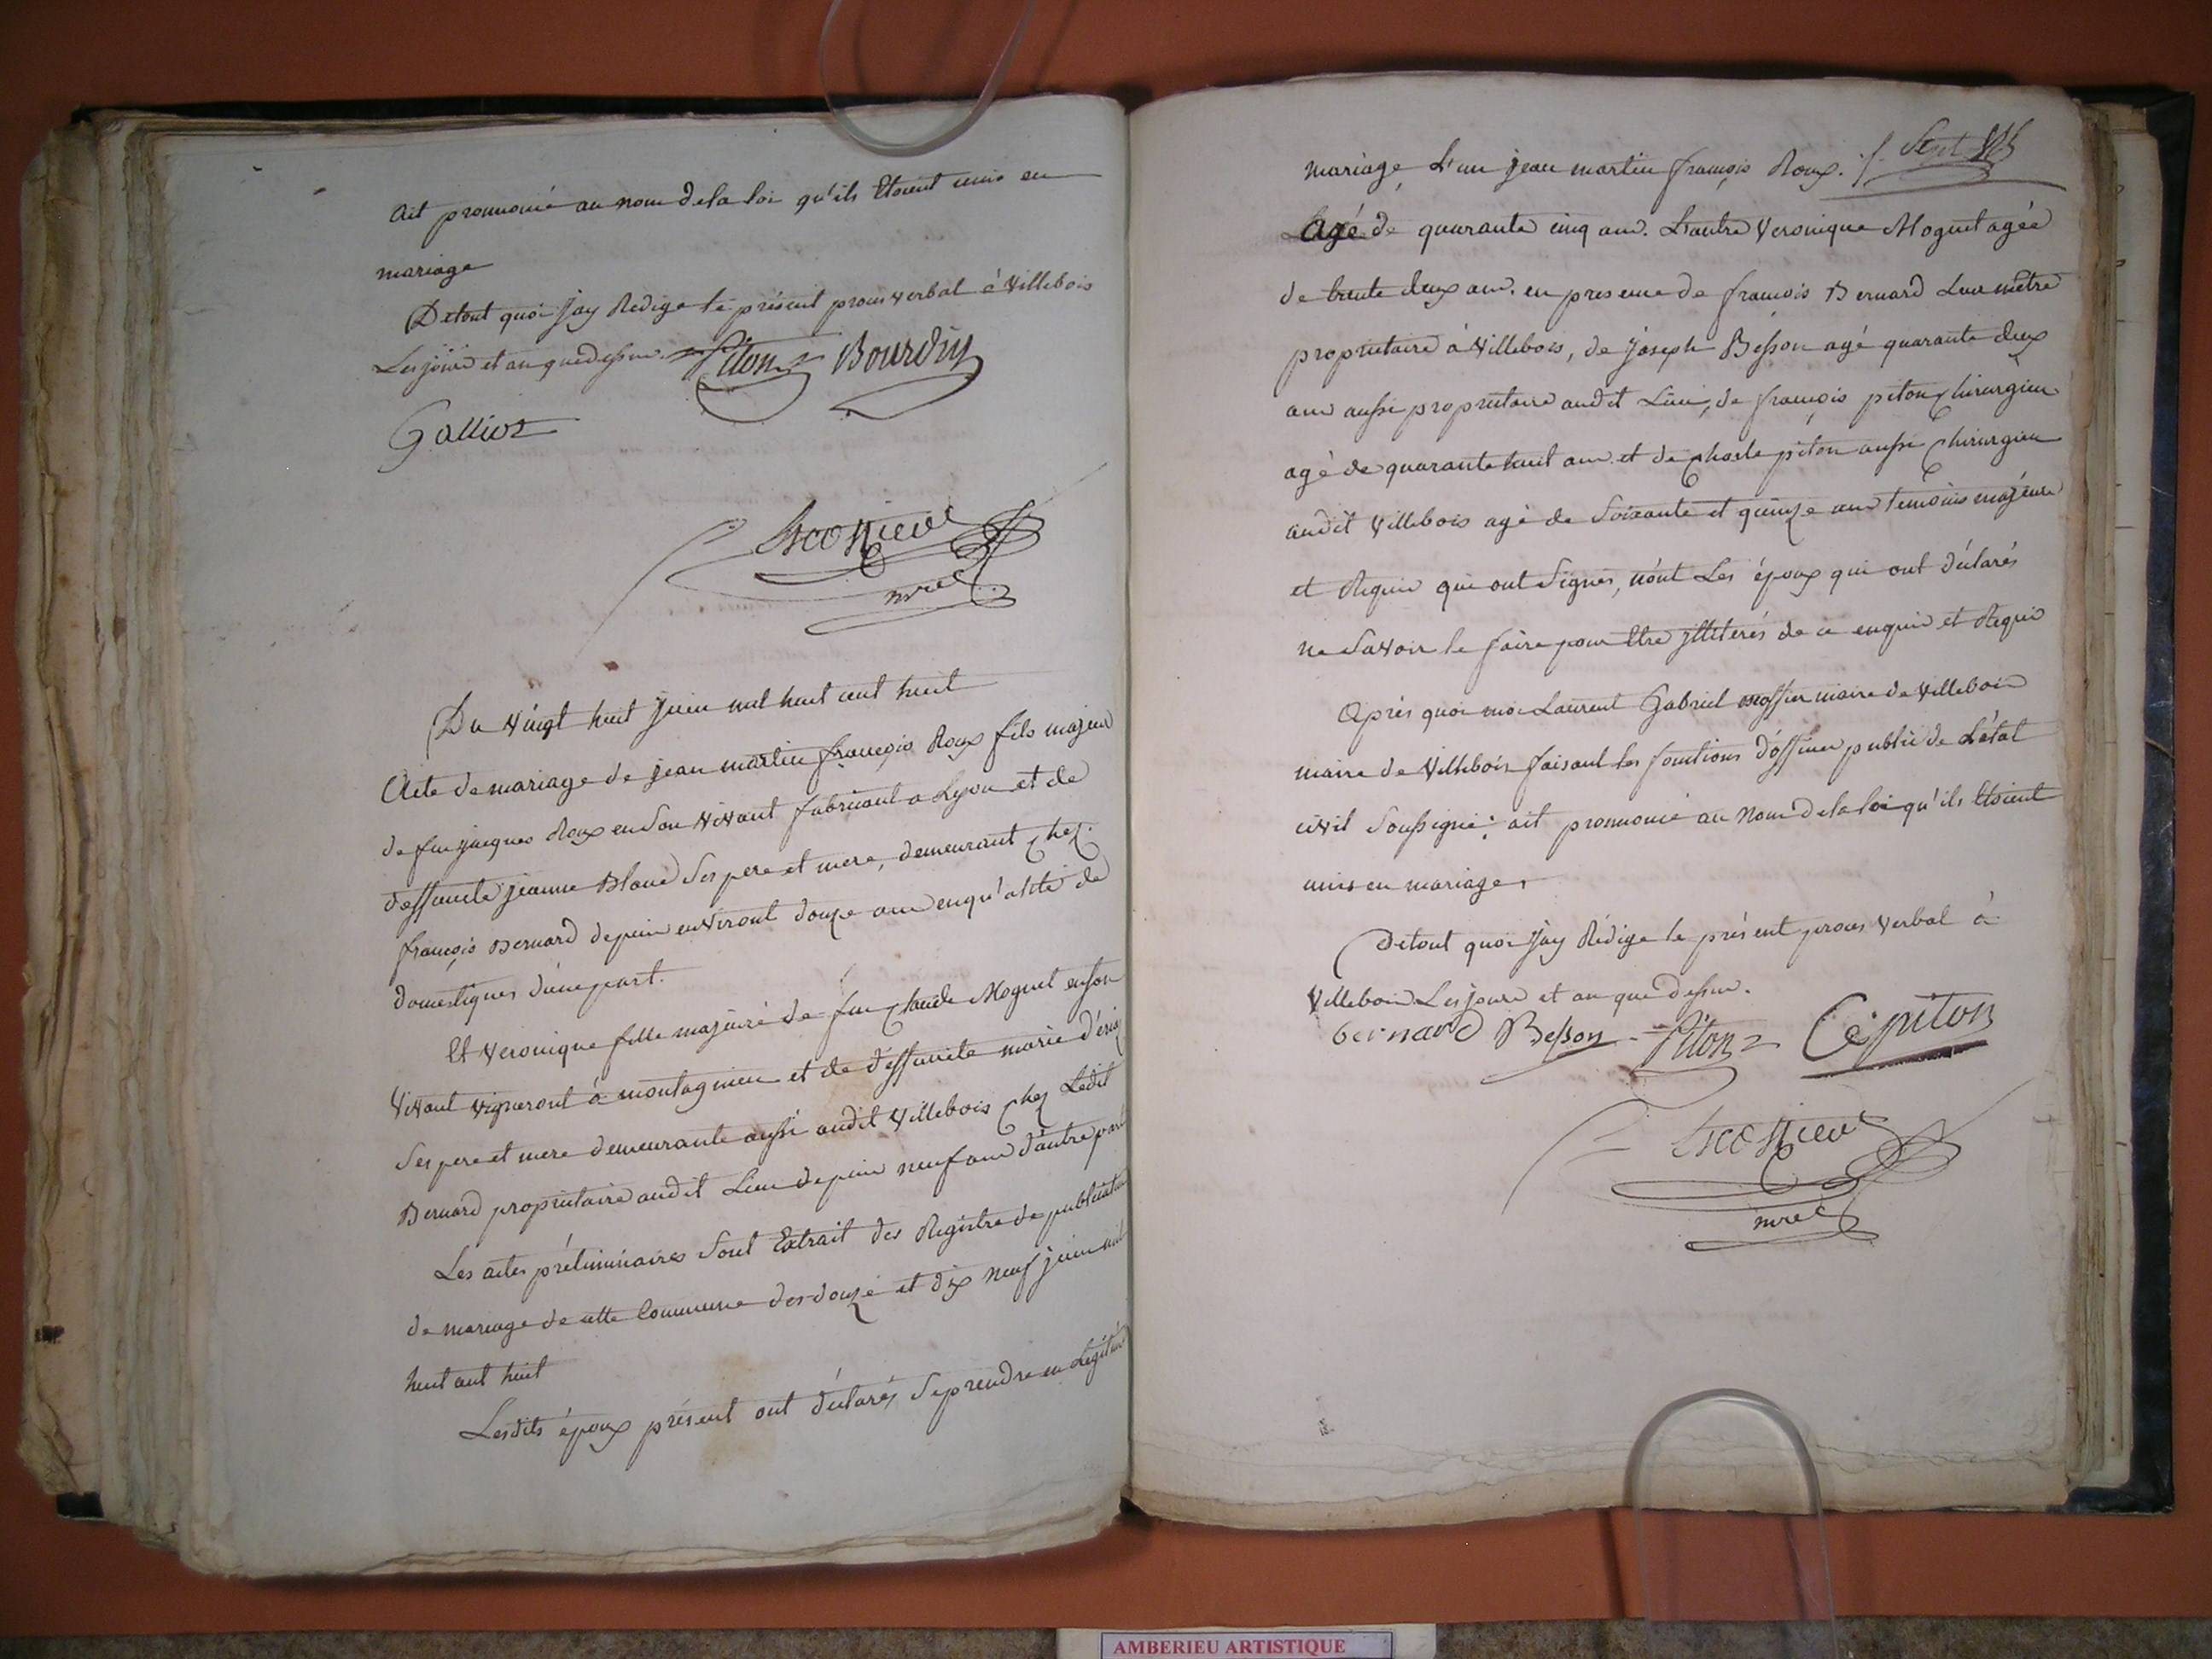 Ait prononcé au nom de la loi qu'ils Etoient unis en
mariage
De tout quoi j'ay Redigé le présent proces verbal à Villebois
Les jour et an que dessus. Piton Bourdin
Galliot
mre
Du vingt huit juin mil huit cent huit
Acte de mariage de jean martin françois Roux fils majeur
de feu jacques Roux en son vivant fabricant a Lyon et de
deffuncte jeanne Blanc Ses pere et mere, demeurant chez
françois Bernard depuis environt douze ans en qu'alité de
domestiques d'une part.
Et Veronique fille majeure de feu Claude Moguet en son
vivant vigneront à montagnieu et de d'effuncte marie
Ses pere et mere demeurante aussi audit Villebois chez Ledit
Bernard proprietaire audit Lieu depuis neuf ans d'autre part
Les actes préliminaires Sont Extrait des Registre de publication
de mariage de cette Commune des douze et dix neuf juin mil
huit cent huit
Lesdits époux présent ont déclarés Se prendre en Légitime
mariage, L'un jean martin françois Roux. Sept
Agé de quarante cinq ans. L'autre Veronique Moguet agée
de trente deux ans. en presence de françois Bernard
proprietaire à Villebois, de joseph Besson agé quarante deux
ans aussi proprietaire audit Lieu, de françois piton chirurgien
agé de quarante huit ans et de Charle piton aussi chirurgien
audit Villebois agé de Soixante et quinze ans temoins majeurs
et Requis qui ont Signés, n'ont Les époux qui ont déclarés
ne Savoir le faire pour Etre jlliterés de ce enquis et Requis
Après quoi moi Laurent Gabriel maire de Villebois
maire de Villebois faisant les fonctions d'officier public de L'état
civil Soussigné: ait prononcé au Nom de la loi qu'ils Etoient
unis en mariage
De tout quoi j'ay Rédigé le présent proces verbal à
Villebois Les jours et an que dessus.
bernard Besson Piton C piton
mre
AMBERIEU ARTISTIQUE